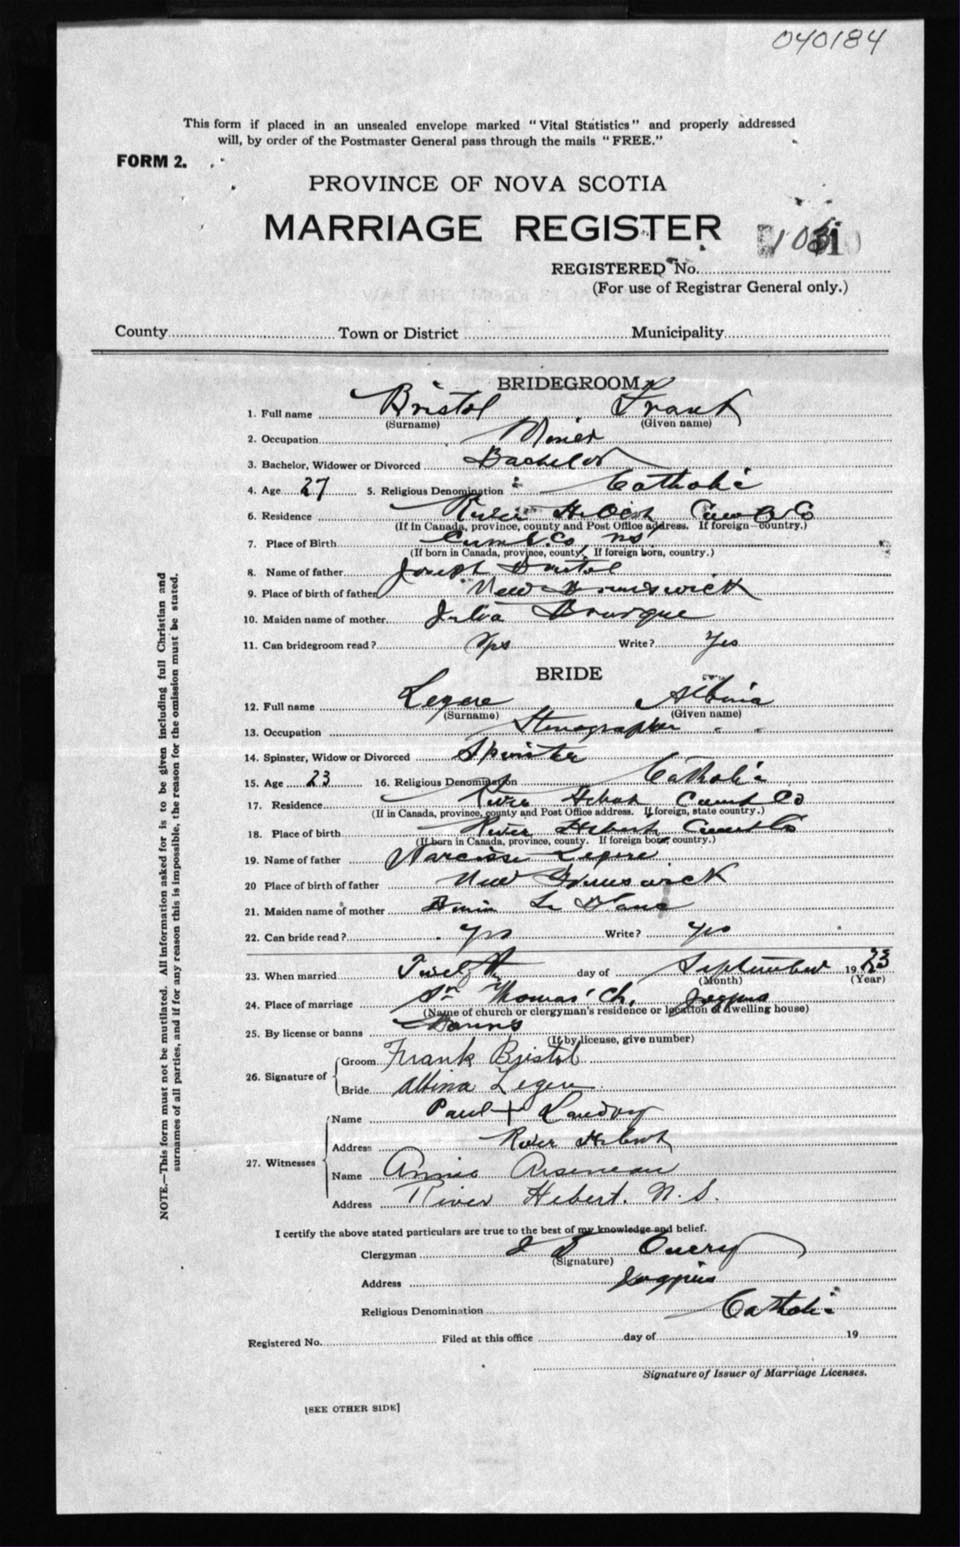 040184
This form if placed in an unsealed envelope marked "Vital Statistics" and properly addressed
will, by order of the Postmaster General pass through the mails "FREE."
FORM 2.
PROVINCE OF NOVA SCOTIA
MARRIAGE REGISTER
REGISTERED No.
(For use of Registrar General only.)
County Town or District Municipality
BRIDEGROOM
1. Full name Bristol Frank
(Surname) (Given name)
2. Occupation Miner
3. Bachelor, Widower or Divorced Bachelor
4. Age 27 5. Religious Denomination Catholic
6. Residence River Hebert Cumb Co
(If in Canada, province, county and Post Office address. If foreign country.)
7. Place of Birth Cumb. Co NS
(If born in Canada, province, county. If foreign born, country.)
8. Name of father Joseph Bristol
9. Place of birth of father New Brunswick
10. Maiden name of mother Julia Bourque
11. Can bridegroom read? Yes Write? Yes
BRIDE
12. Full name Legere Albina
(Surname) (Given name)
13. Occupation Stenographer
14. Spinster, Widow or Divorced Spinster
15. Age 23 16. Religious Denomination Catholic
17. Residence River Hebert Cumb Co
(If in Canada, province, county and Post Office address. If foreign, state country.)
18. Place of birth River Hebert Cumb Co
(If born in Canada, province, county. If foreign born, country.)
19. Name of father Narcisse Legere
20 Place of birth of father New Brunswick
21. Maiden name of mother Le Blanc
22. Can bride read? Yes Write? Yes
23. When married Twelfth day of September 1923
(Month) (Year)
24. Place of marriage St Thomas' Ch, Joggins
(Name of church or clergyman's residence or location of dwelling house)
25. By license or banns Banns
(If by license, give number)
26. Signature of Groom Frank Bristol
Bride Albina Legere
27. Witnesses Name Paul + Landry
Address River Hebert
Name Annie Arseneau
Address River Hebert. N. S.
I certify the above stated particulars are true to the best of my knowledge and belief.
Clergyman
(Signature)
Address Joggins
Religious Denomination Catholic
Registered No. Filed at this office day of 19
Signature of Issuer of Marriage Licenses.
[SEE OTHER SIDE]
NOTE.—This form must not be mutilated. All information asked for is to be given including full Christian and
surnames of all parties, and if for any reason this is impossible, the reason for the omission must be stated.